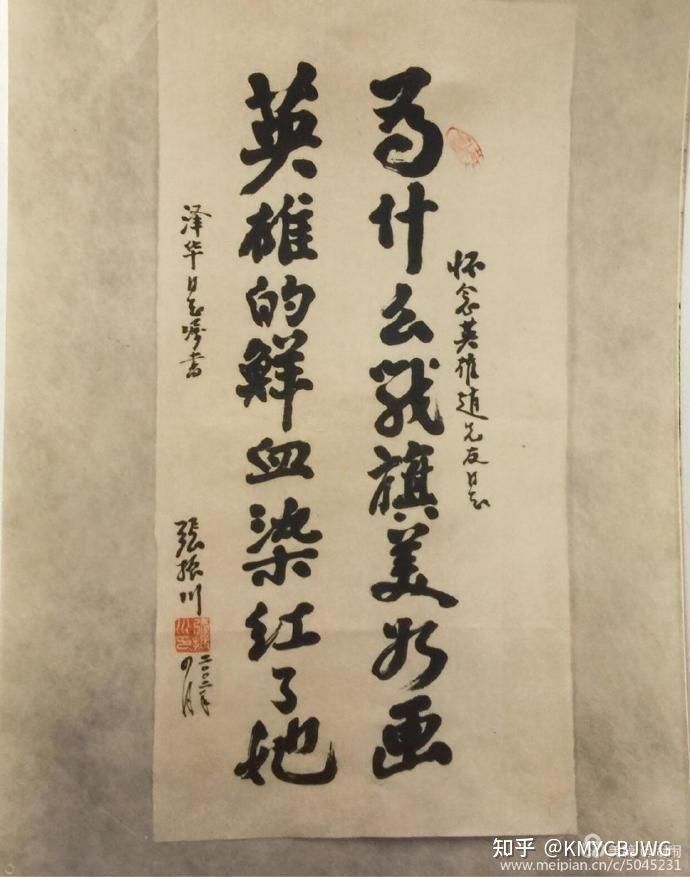 为什么战旗美如画
怀念英雄赵先友同志
英雄的鲜血染红了她
泽华同志嘱书
張振川
二〇〇二年
四月
知乎 @KMYCBJWG
www.meipian.cn/c/5045231